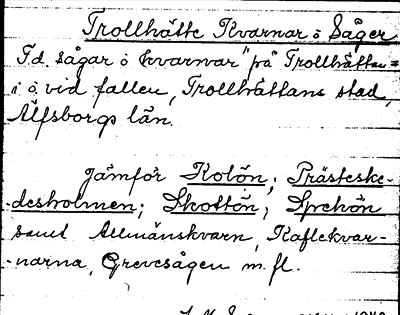 Trollhätte Kvarnar o Såger
F.d. sågar o kvarnar "på Trollhättan =
i å vid fallen, Trollhättans stad,
Älfsborgs län.
Jämför Kolön; Prästeske-
desholmen; Skottön; Spehön
samt Allmänskvarn, Kaflekvar-
narna, Grevesågen m. fl.